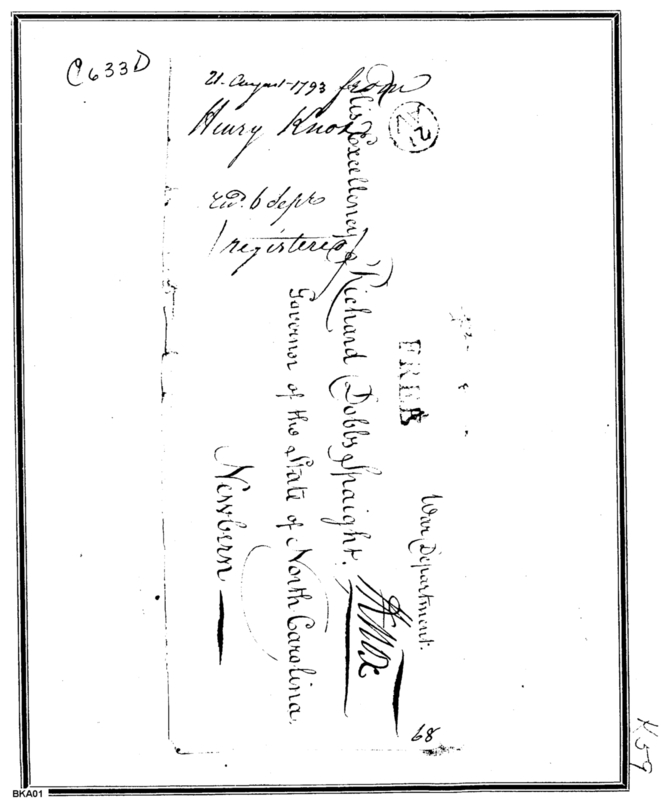 C633D
21. August 1793 from
Henry Knox
recd. 6 Sept
registered
22
FREE
War Department.
HKnox
His Excellency
Richard Dobbs Spaight.
Governor of the State of North Carolina.
Newbern
68
K59
BKA01